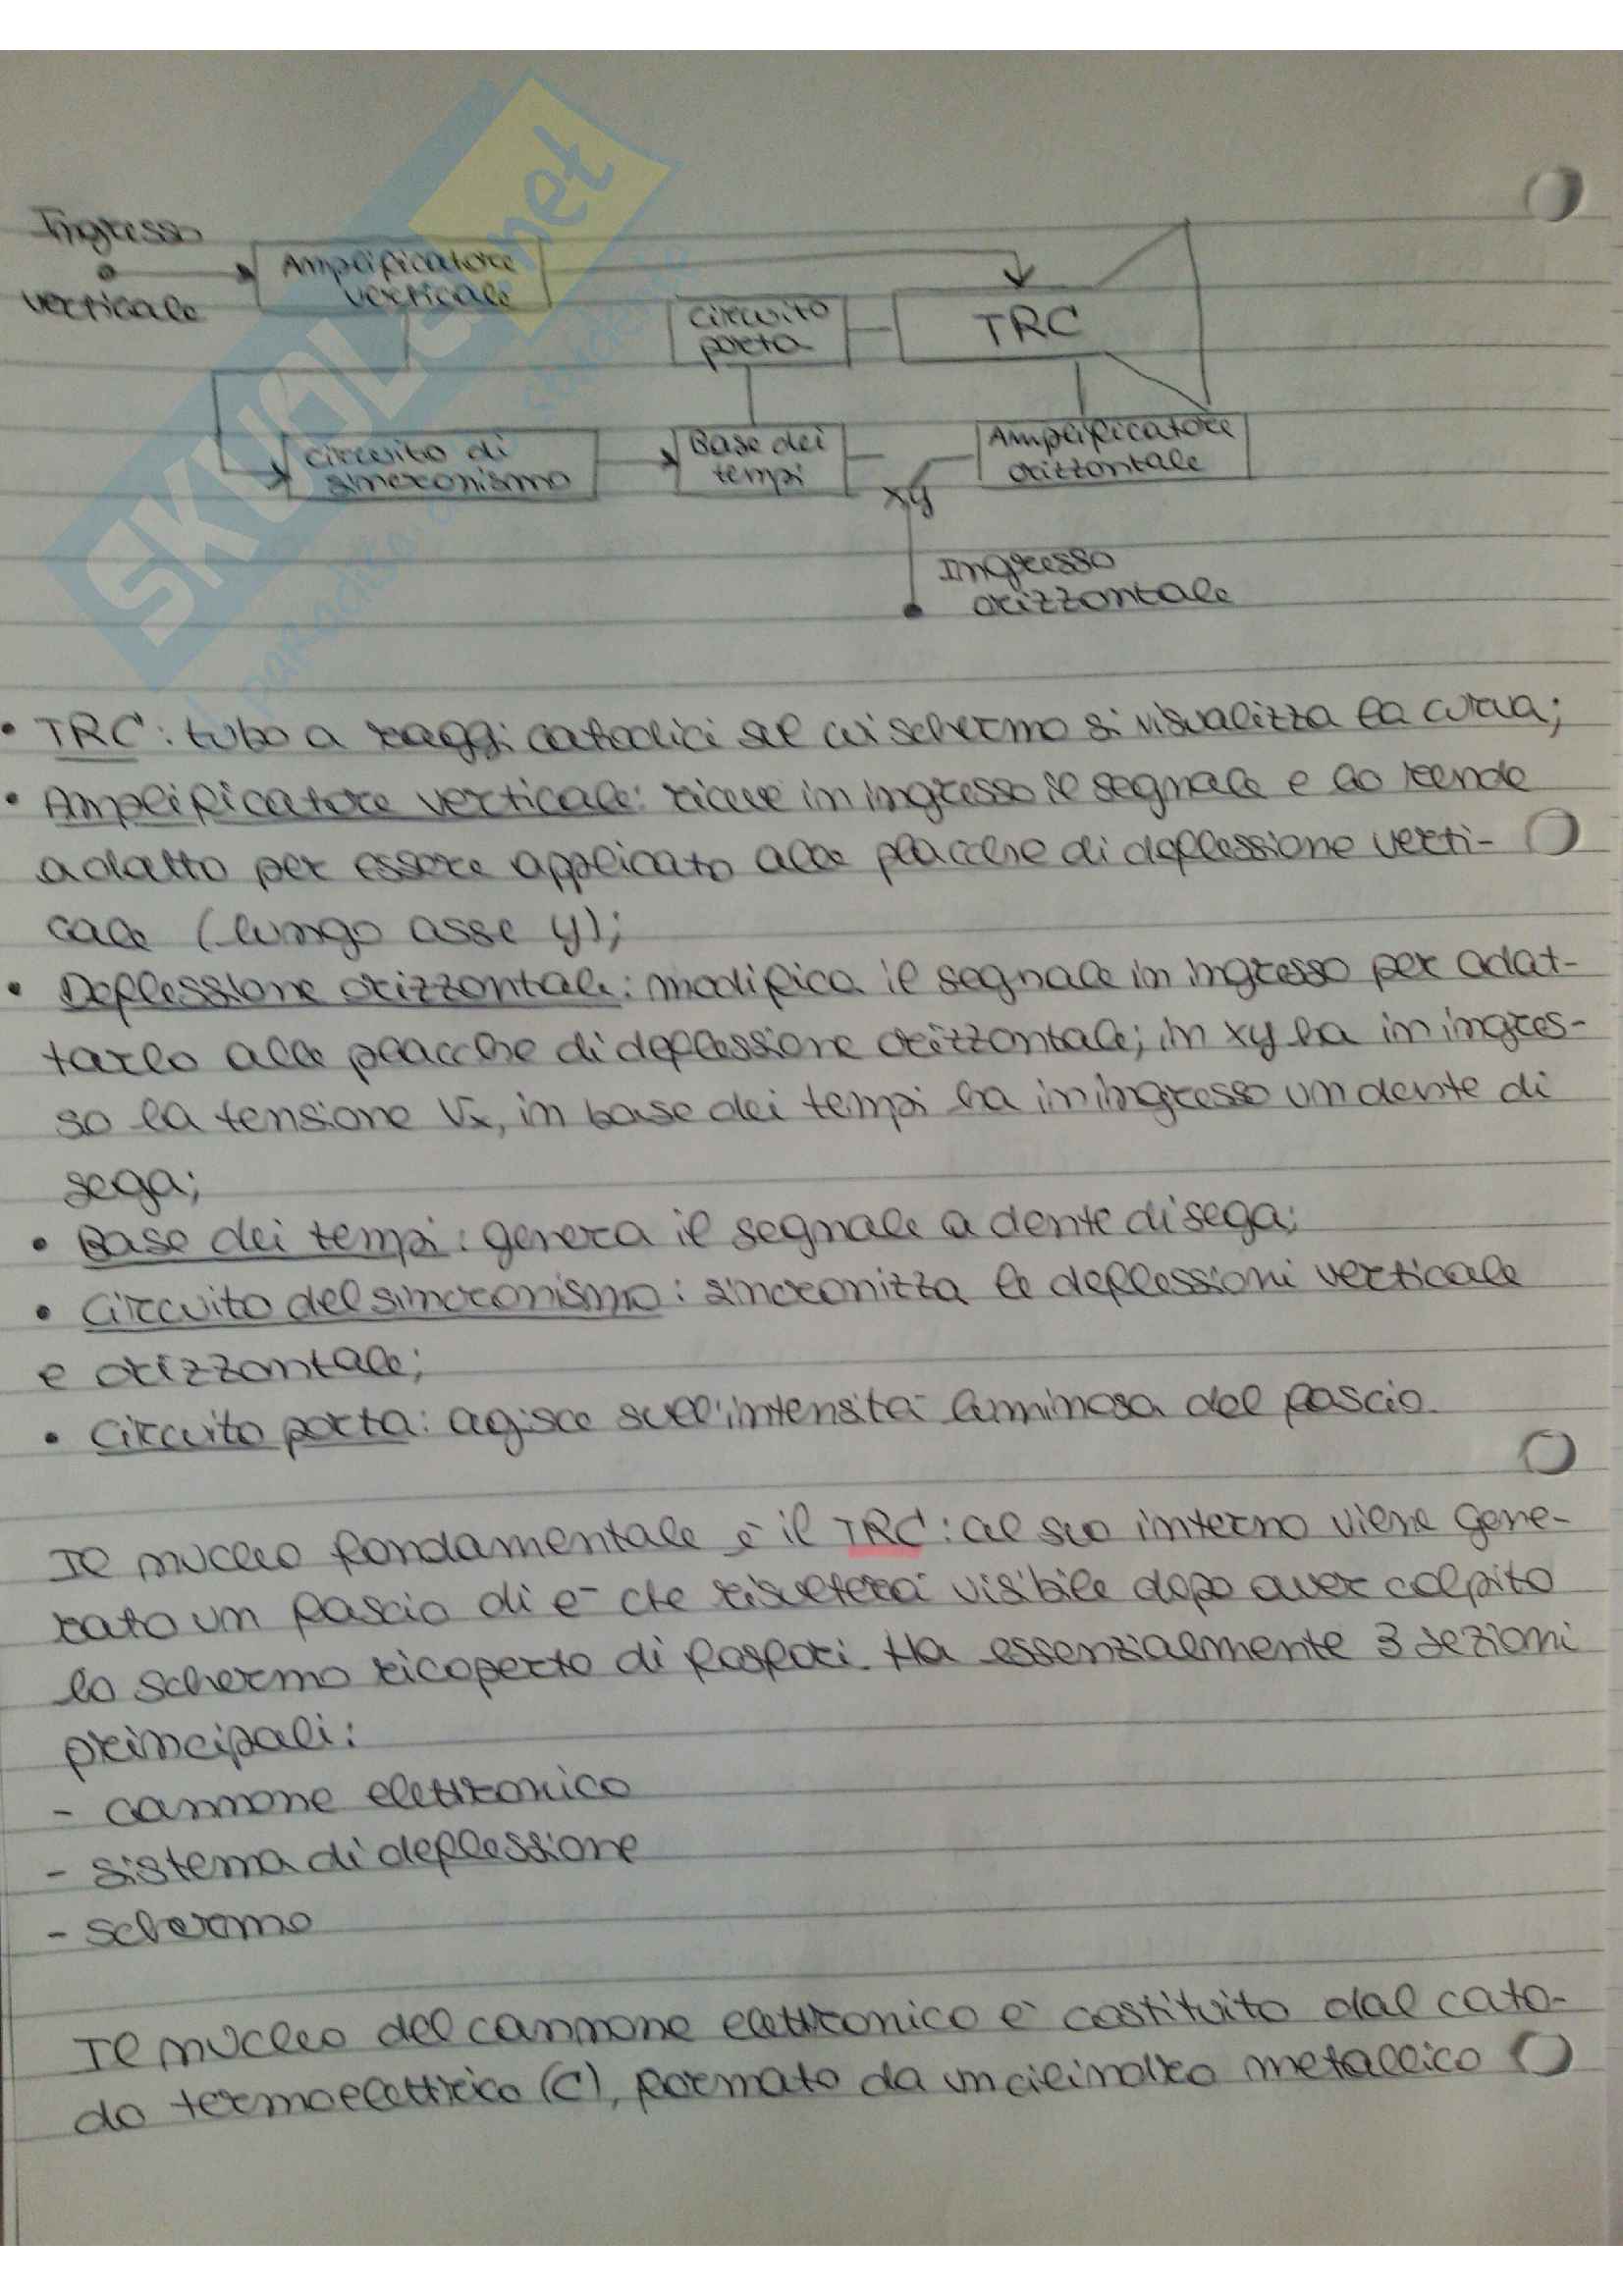 Ingresso
verticale
Amplificatore
verticale
circuito
porta
TRC
circuito di
sincronismo
Base dei
tempi
Amplificatore
orizzontale
xy
Ingresso
orizzontale
SKUOLA.net
il paradiso dello studente
• TRC: tubo a raggi catodici sul cui schermo si visualizza la curva;
• Amplificatore verticale: riceve in ingresso il segnale e lo rende
adatto per essere applicato alle placche di deflessione verti-
cale (lungo asse y);
• Deflessione orizzontale: modifica il segnale in ingresso per adat-
tarlo alle placche di deflessione orizzontale; in xy ha in ingres-
so la tensione Vx, in base dei tempi ha in ingresso un dente di
sega;
• Base dei tempi: genera il segnale a dente di sega;
• Circuito del sincronismo: sincronizza le deflessioni verticale
e orizzontale;
• Circuito porta: agisce sull'intensità luminosa del fascio.
Il nucleo fondamentale è il TRC: al suo interno viene gene-
rato un fascio di e⁻ che risulterà visibile dopo aver colpito
lo schermo ricoperto di fosfori. Ha essenzialmente 3 sezioni
principali:
- cannone elettronico
- sistema di deflessione
- schermo
Il nucleo del cannone elettronico è costituito dal cato-
do termoelettrico (C), formato da un cilindro metallico